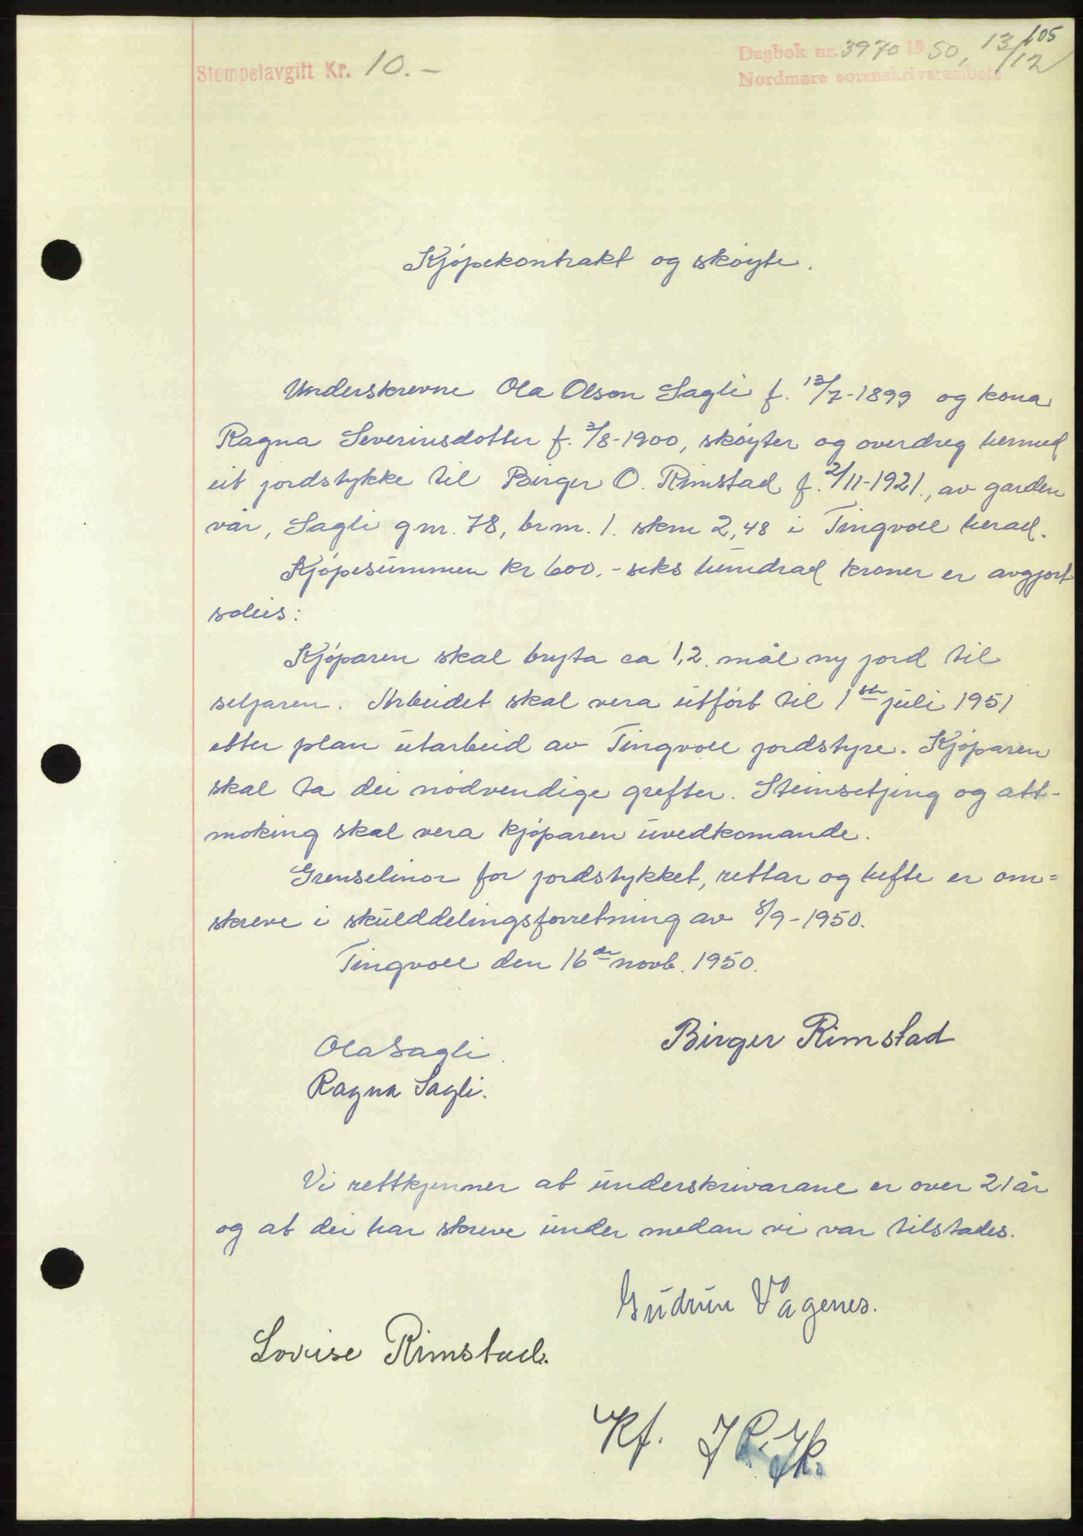 105
Stempelavgift Kr. 10.-
Dagbok nr. 3970 19 50, 13/12
Nordmøre sorenskriverembete
Kjøpekontrakt og skøyte.
Underskrevne Ola Olson Sagli f. 13/7-1899 og kona
Ragna Severinsdotter f. 3/8-1900, skøyter og overdreg hermed
eit jordstykke til Birger O. Rimstad f. 2/11-1921, av garden
vår, Sagli g.nr. 78, br.nr. 1. skm 2,48 i Tingvoll herad.
Kjøpesummen kr 600.- seks hundrad kroner er avgjort
soleis:
Kjøparen skal bryta ca 1,2 mål ny jord til
seljaren. Arbeidet skal vera utført til 1ste juli 1951
etter plan utarbeid av Tingvoll jordstyre. Kjøparen
skal ta dei nødvendige grefter. Steinsetjing og att-
moking skal vera kjøparen uvedkomande.
Grenselinor for jordstykket, rettar og hefte er om=
skreve i skulddelingsforretning av 8/9-1950.
Tingvoll den 16de novb. 1950.
Birger Rimstad
Ola Sagli.
Ragna Sagli.
Vi rettkjenner at underskrivarane er over 21 år
og at dei har skreve under medan vi var tilstades.
Gudrun Vågenes.
Lovise Rimstad.
Kf.